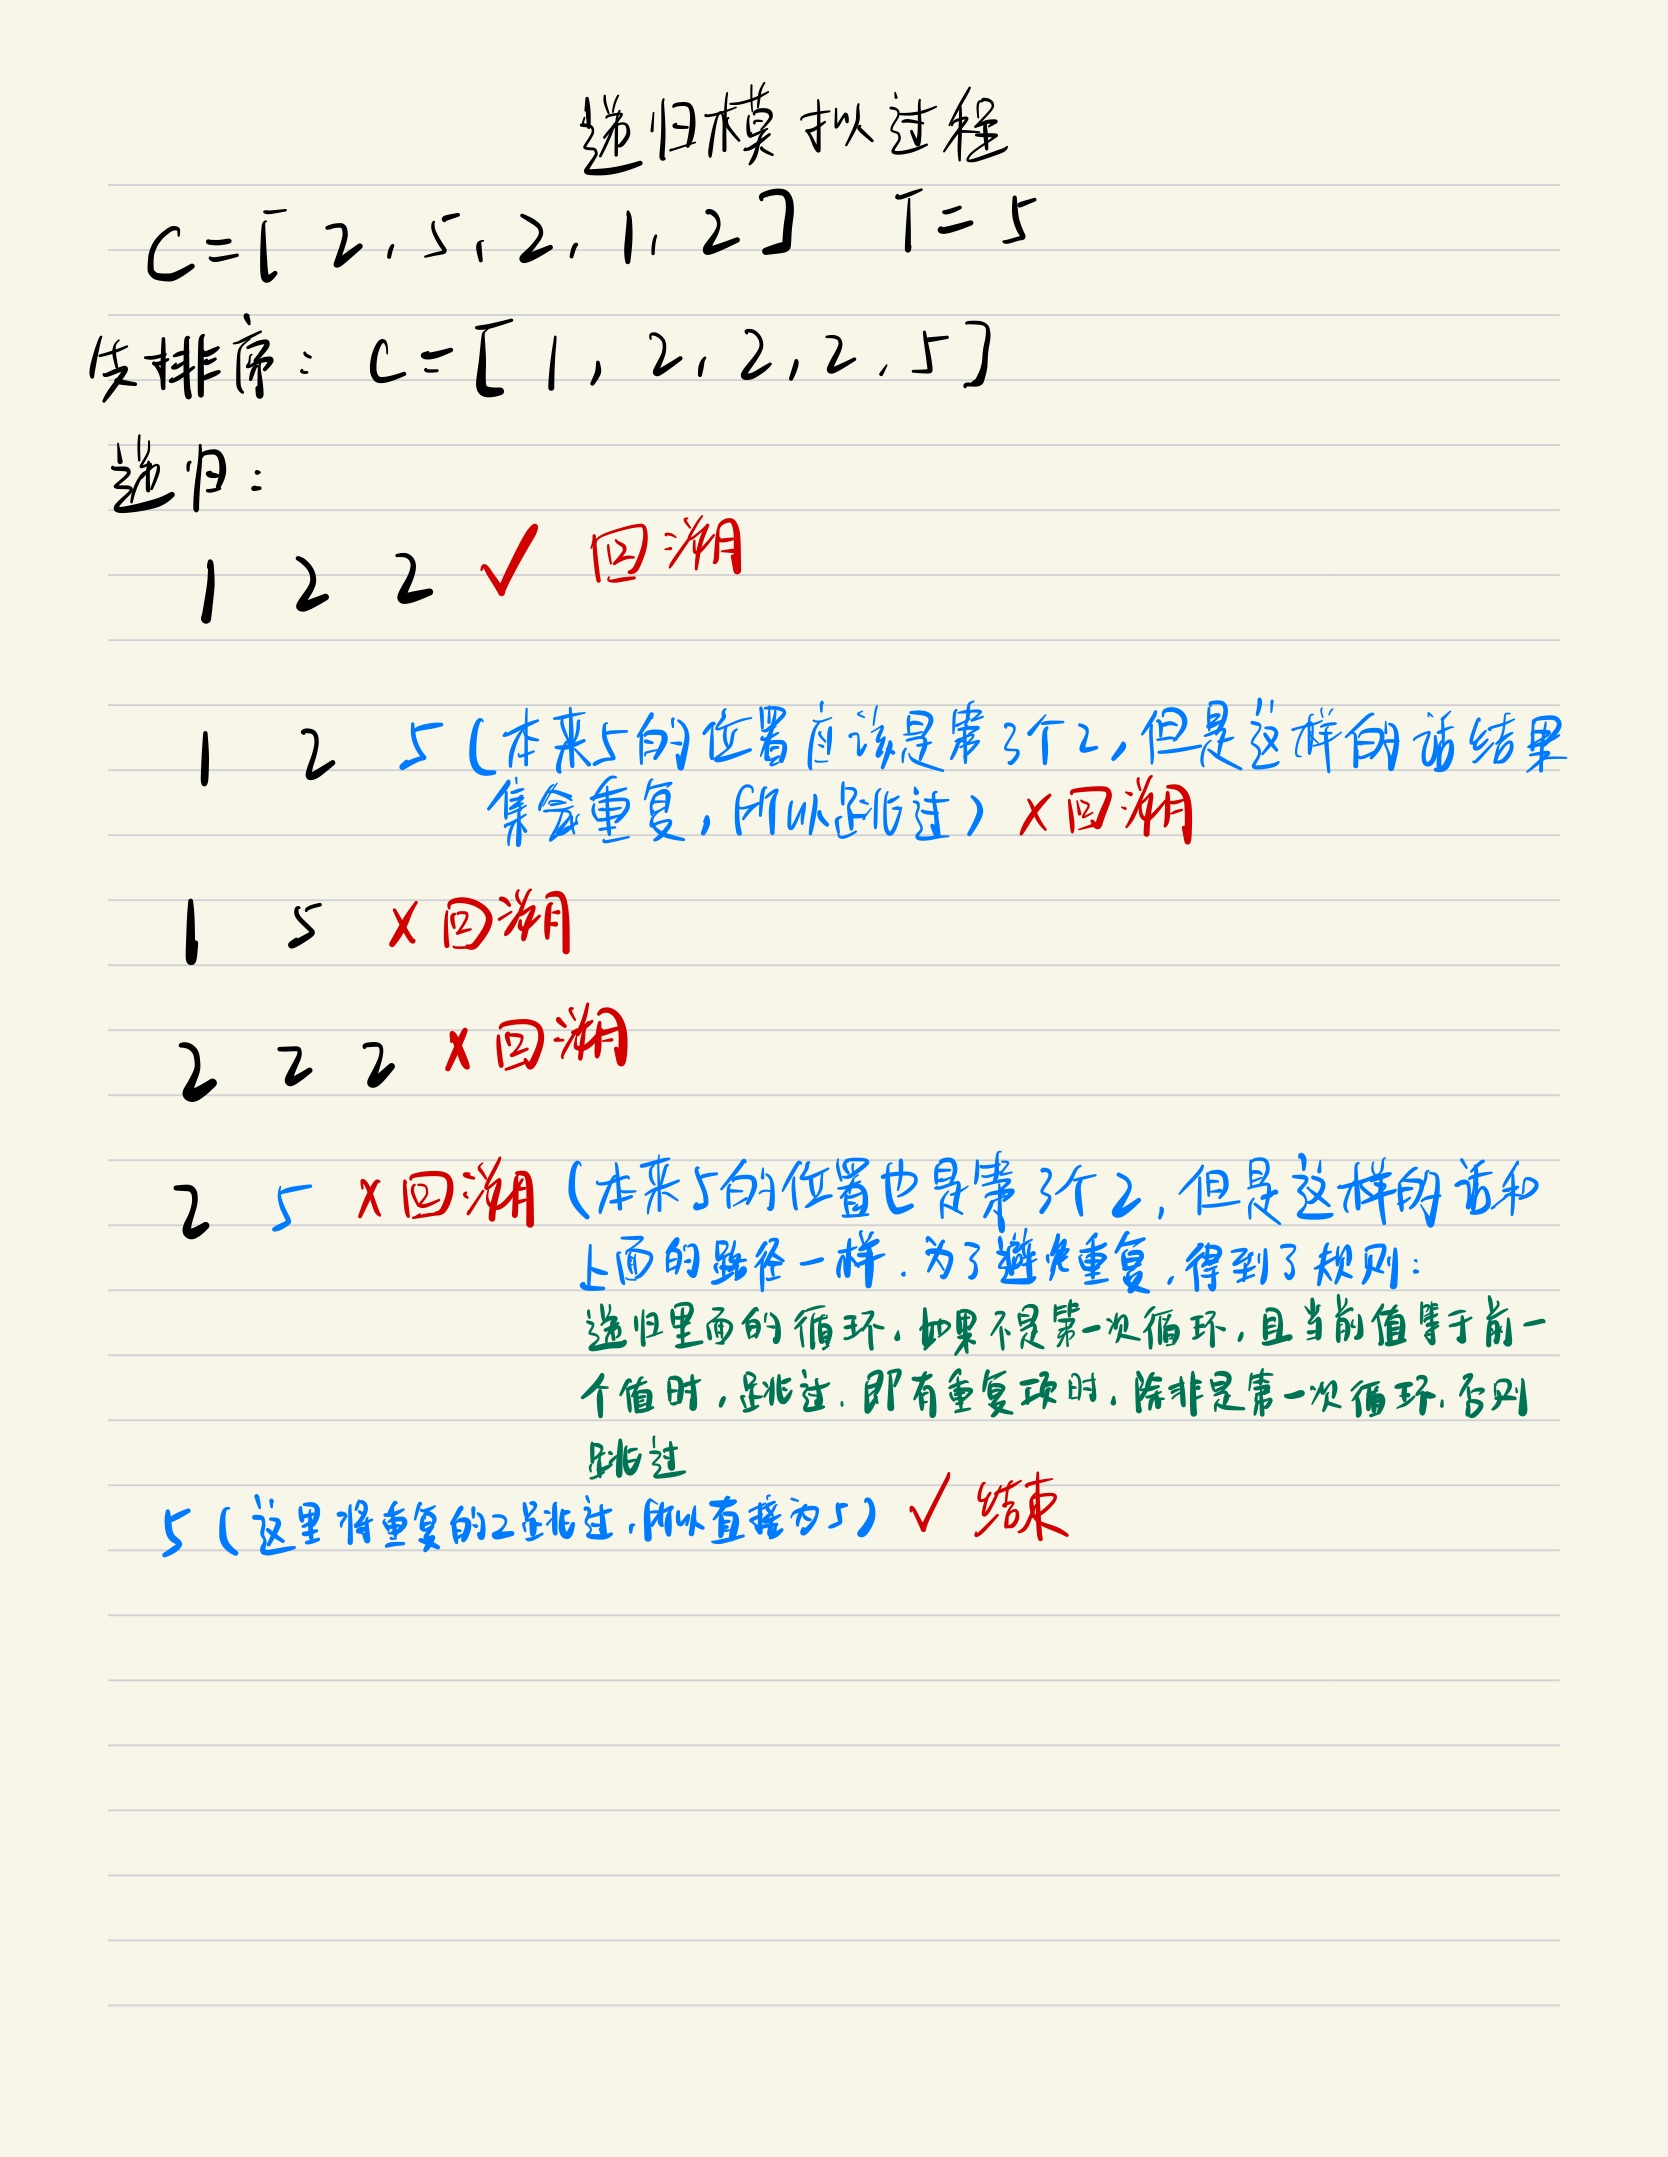 递归模拟过程
C=[2,5,2,1,2] T=5
先排序: C=[1,2,2,2,5]
递归:
1 2 2 ✓ 回溯
1 2 5 (本来5的位置应该是第3个2,但是这样的话结果
集会重复,所以跳过) X 回溯
1 5 X 回溯
2 2 2 X 回溯
2 5 X 回溯 (本来5的位置也是第3个2,但是这样的话和
上面的路径一样.为了避免重复,得到了规则:
递归里面的循环,如果不是第一次循环,且当前值等于前一
个值时,跳过.即有重复项时,除非是第一次循环,否则
跳过
5 (这里将重复的2跳过,所以直接为5) ✓ 结束